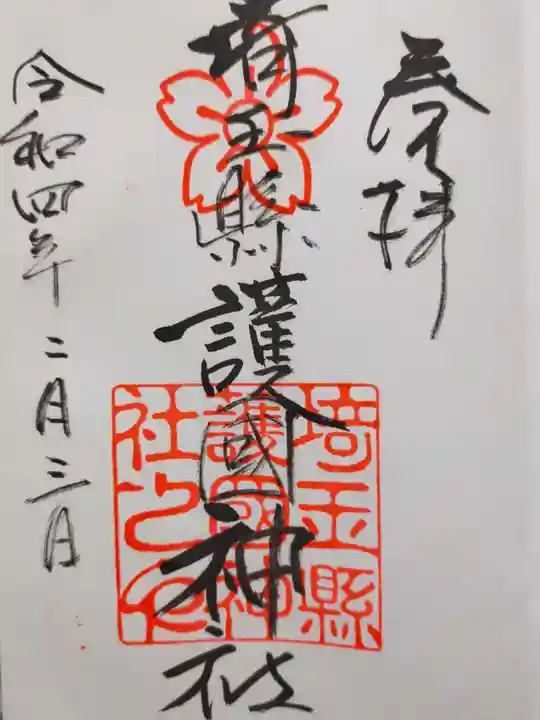 奉拝
埼玉縣護國神社
埼玉縣
護國神
社之印
令和四年二月三日